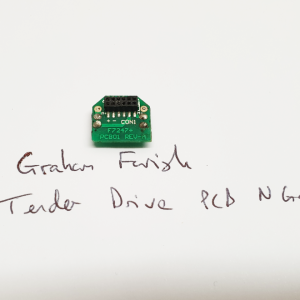 CON1
F7247+
PCB01 REV-A
Graham Farish
Tender Drive PCB N Ga